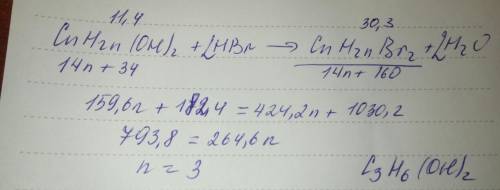 11,4 30,3
CnH2n(OH)2 + 2HBr → CnH2nBr2 + 2H2O
14n + 34 14n + 160
159,6n + 1824 = 424,2n + 1030,2
793,8 = 264,6n
n = 3 C3H6(OH)2